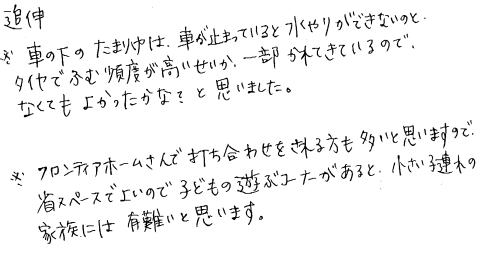 追伸
※ 車の下のたまりゅうは、車が止まっていると水やりができないのと、
タイヤでふむ頻度が高いせいか、一部かれてきているので、
なくてもよかったかな?と思いました。
※ フロンティアホームさんで打ち合わせをされる方も多いと思いますので、
省スペースで上いので子どもの遊ぶコーナーがあると、小さい子連れの
家族には有難いと思います。